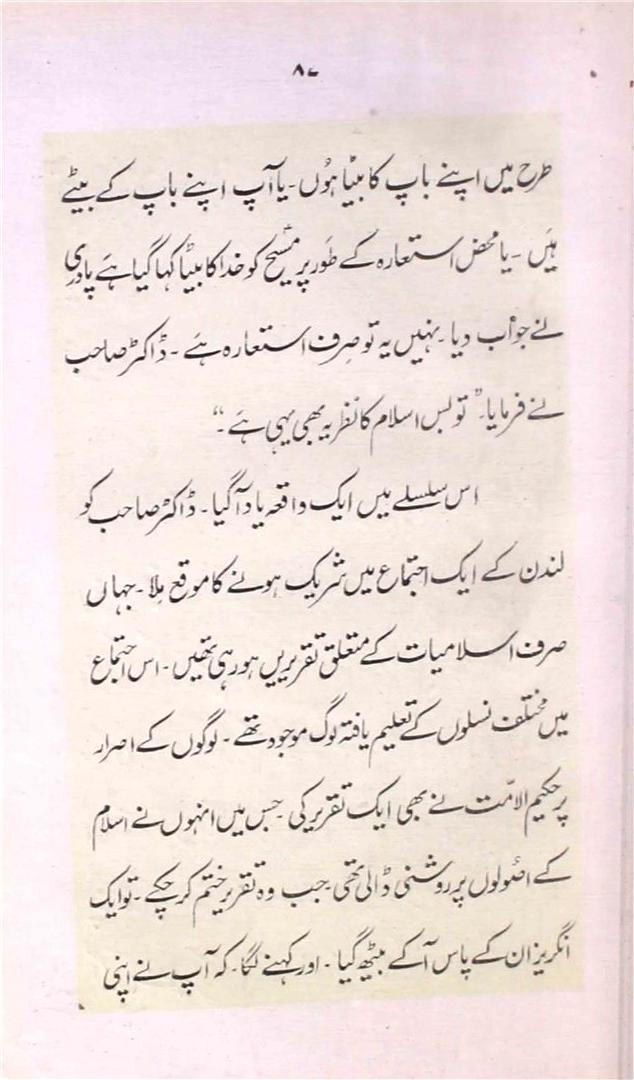 ۸۷
طرح میں اپنے باپ کا بیٹا ہوُں ۔ یا آپ اپنے باپ کے بیٹے
ہیَں ۔ یا محض استعارہ کے طَور پر مسیحؑ کو خدا کا بیٹا کہا گیا ہے پادری
نے جواب دیا ۔ نہیں یہ تو صِرف استعارہ ہے ۔ ڈاکٹر صاحب
نے فرمایا ۔ ”تو بس اسلام کا نظریہ بھی یہی ہے ۔“
اس سلسلے میں ایک واقعہ یاد آگیا ۔ ڈاکٹر صاحب کو
لندن کے ایک اجتماع میں شریک ہونے کا موقع مِلا ۔ جہاں
صرف اسلامیات کے متعلق تقریریں ہو رہی تھیں ۔ اس اجتماع
میں مختلف نسلوں کے تعلیم یافتہ لوگ موجود تھے ۔ لوگوں کے اصرار
پر حکیم الامّت نے بھی ایک تقریر کی ۔ جس میں انہوں نے اسلام
کے اصُولوں پر روشنی ڈالی تھی ۔ جب وہ تقریر ختم کر چکے ۔ تو ایک
انگریز ان کے پاس آ کے بیٹھ گیا ۔ اور کہنے لگا ۔ کہ آپ نے اپنی